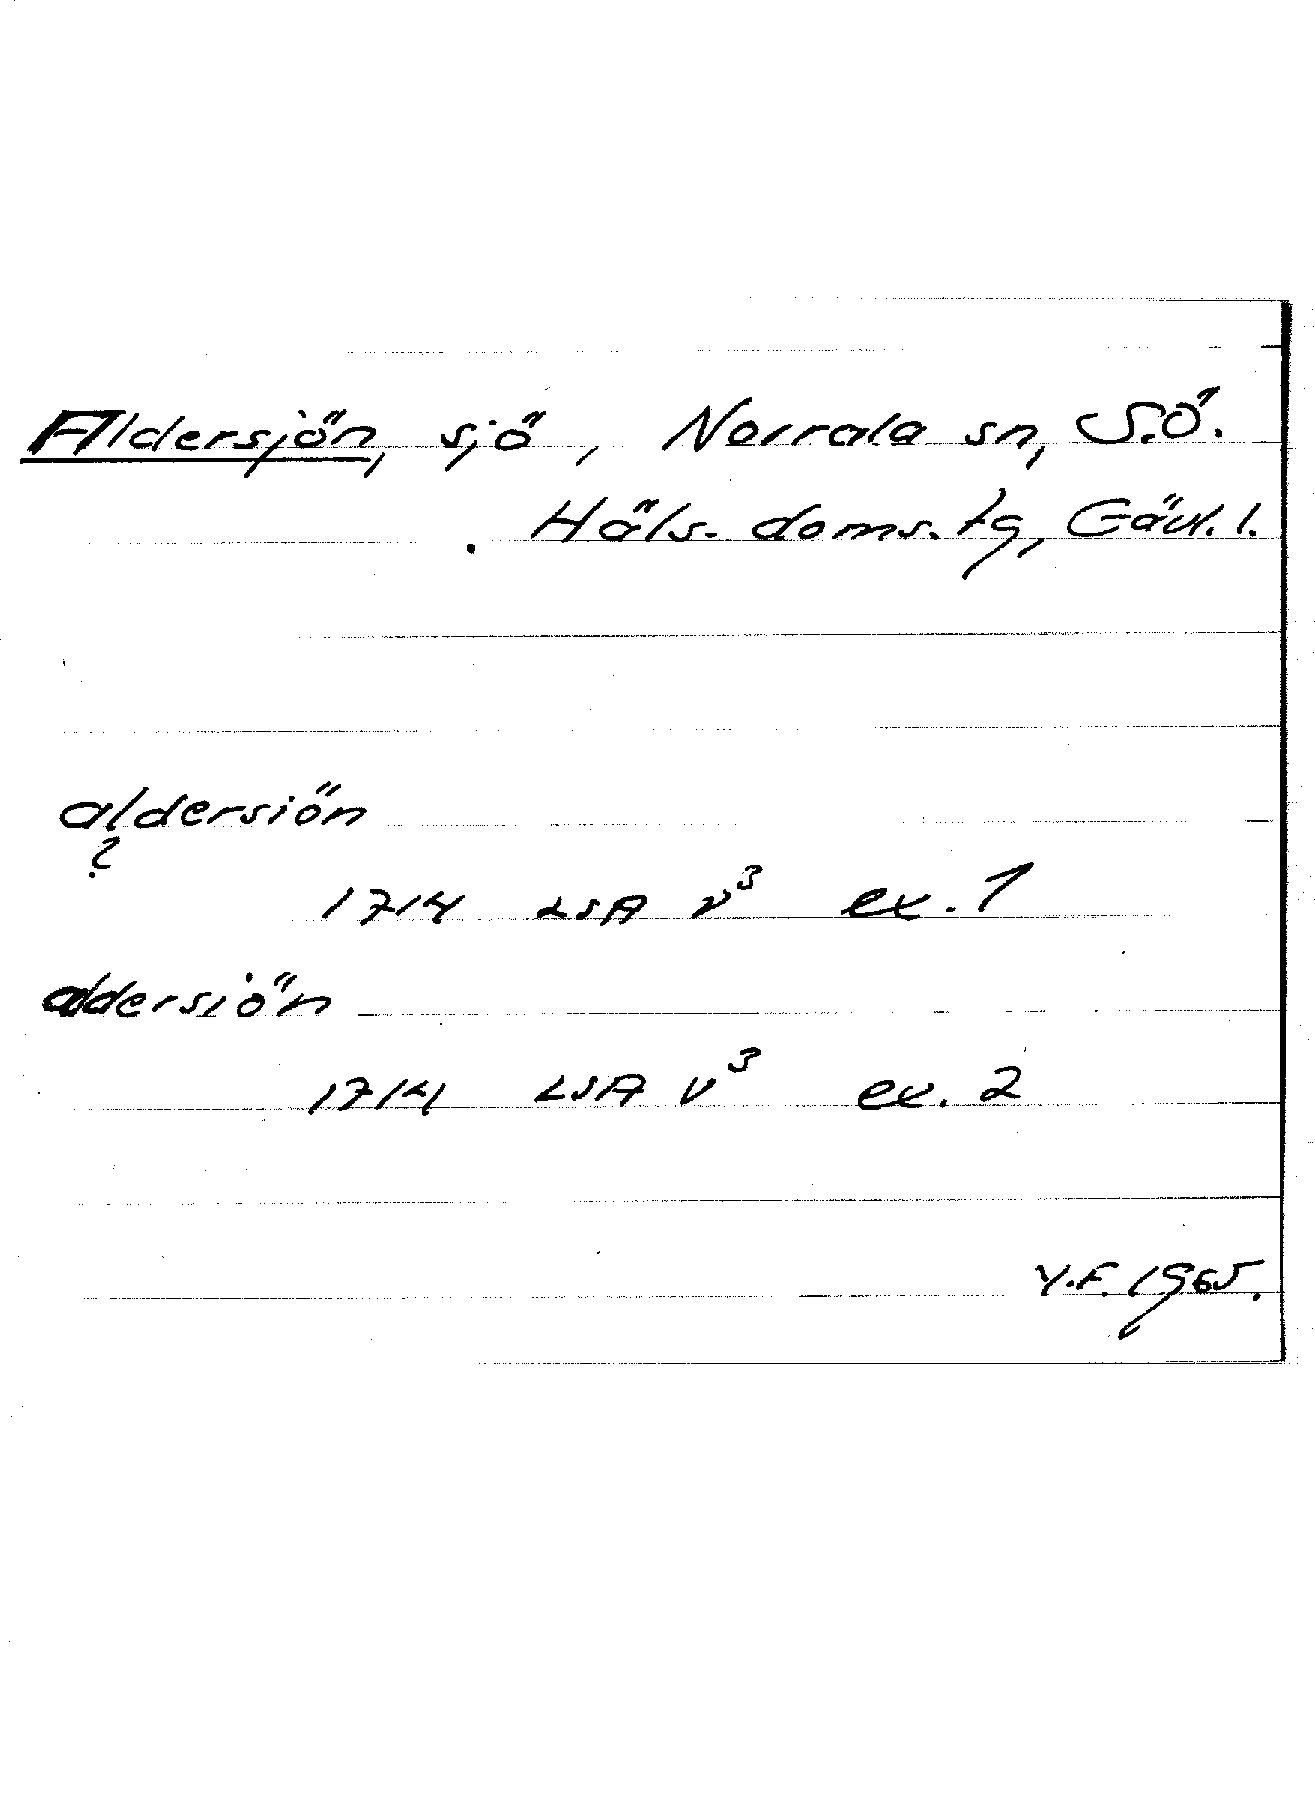 Aldersjön, sjö, Norrala sn, S.Ö.
Häls. doms. tg, Gävl. l.
aldersiön
?
1714 LSA v³ ex. 1
aldersiön
1714 LSA v³ ex. 2
Y.F. 1965.